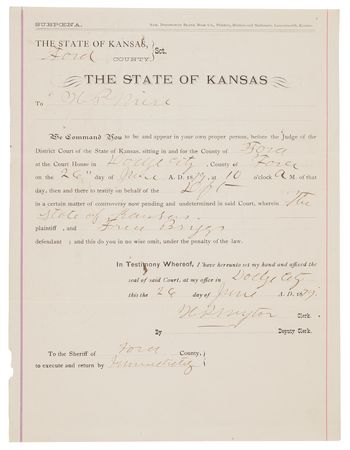 SUBPŒNA.
THE STATE OF KANSAS, } Sct.
Ford COUNTY. }
THE STATE OF KANSAS
To
We Command You to be and appear in your own proper person, before the Judge of the
District Court of the State of Kansas, sitting in and for the County of Ford
at the Court House in Dodge City, County of Ford
on the 26" day of June A. D. 1879, at 10 o'clock A M. of that
day, then and there to testify on behalf of the Dft
in a certain matter of controversy now pending and undetermined in said Court, wherein The
State of Kansas
plaintiff, and Fred
defendant; and this do you in no wise omit, under the penalty of the law.
In Testimony Whereof, I have hereunto set my hand and affixed the
seal of said Court, at my office in Dodge City
this the 26 day of June A. D. 1879.
Clerk.
By Deputy Clerk.
To the Sheriff of Ford County,
to execute and return by Immediately